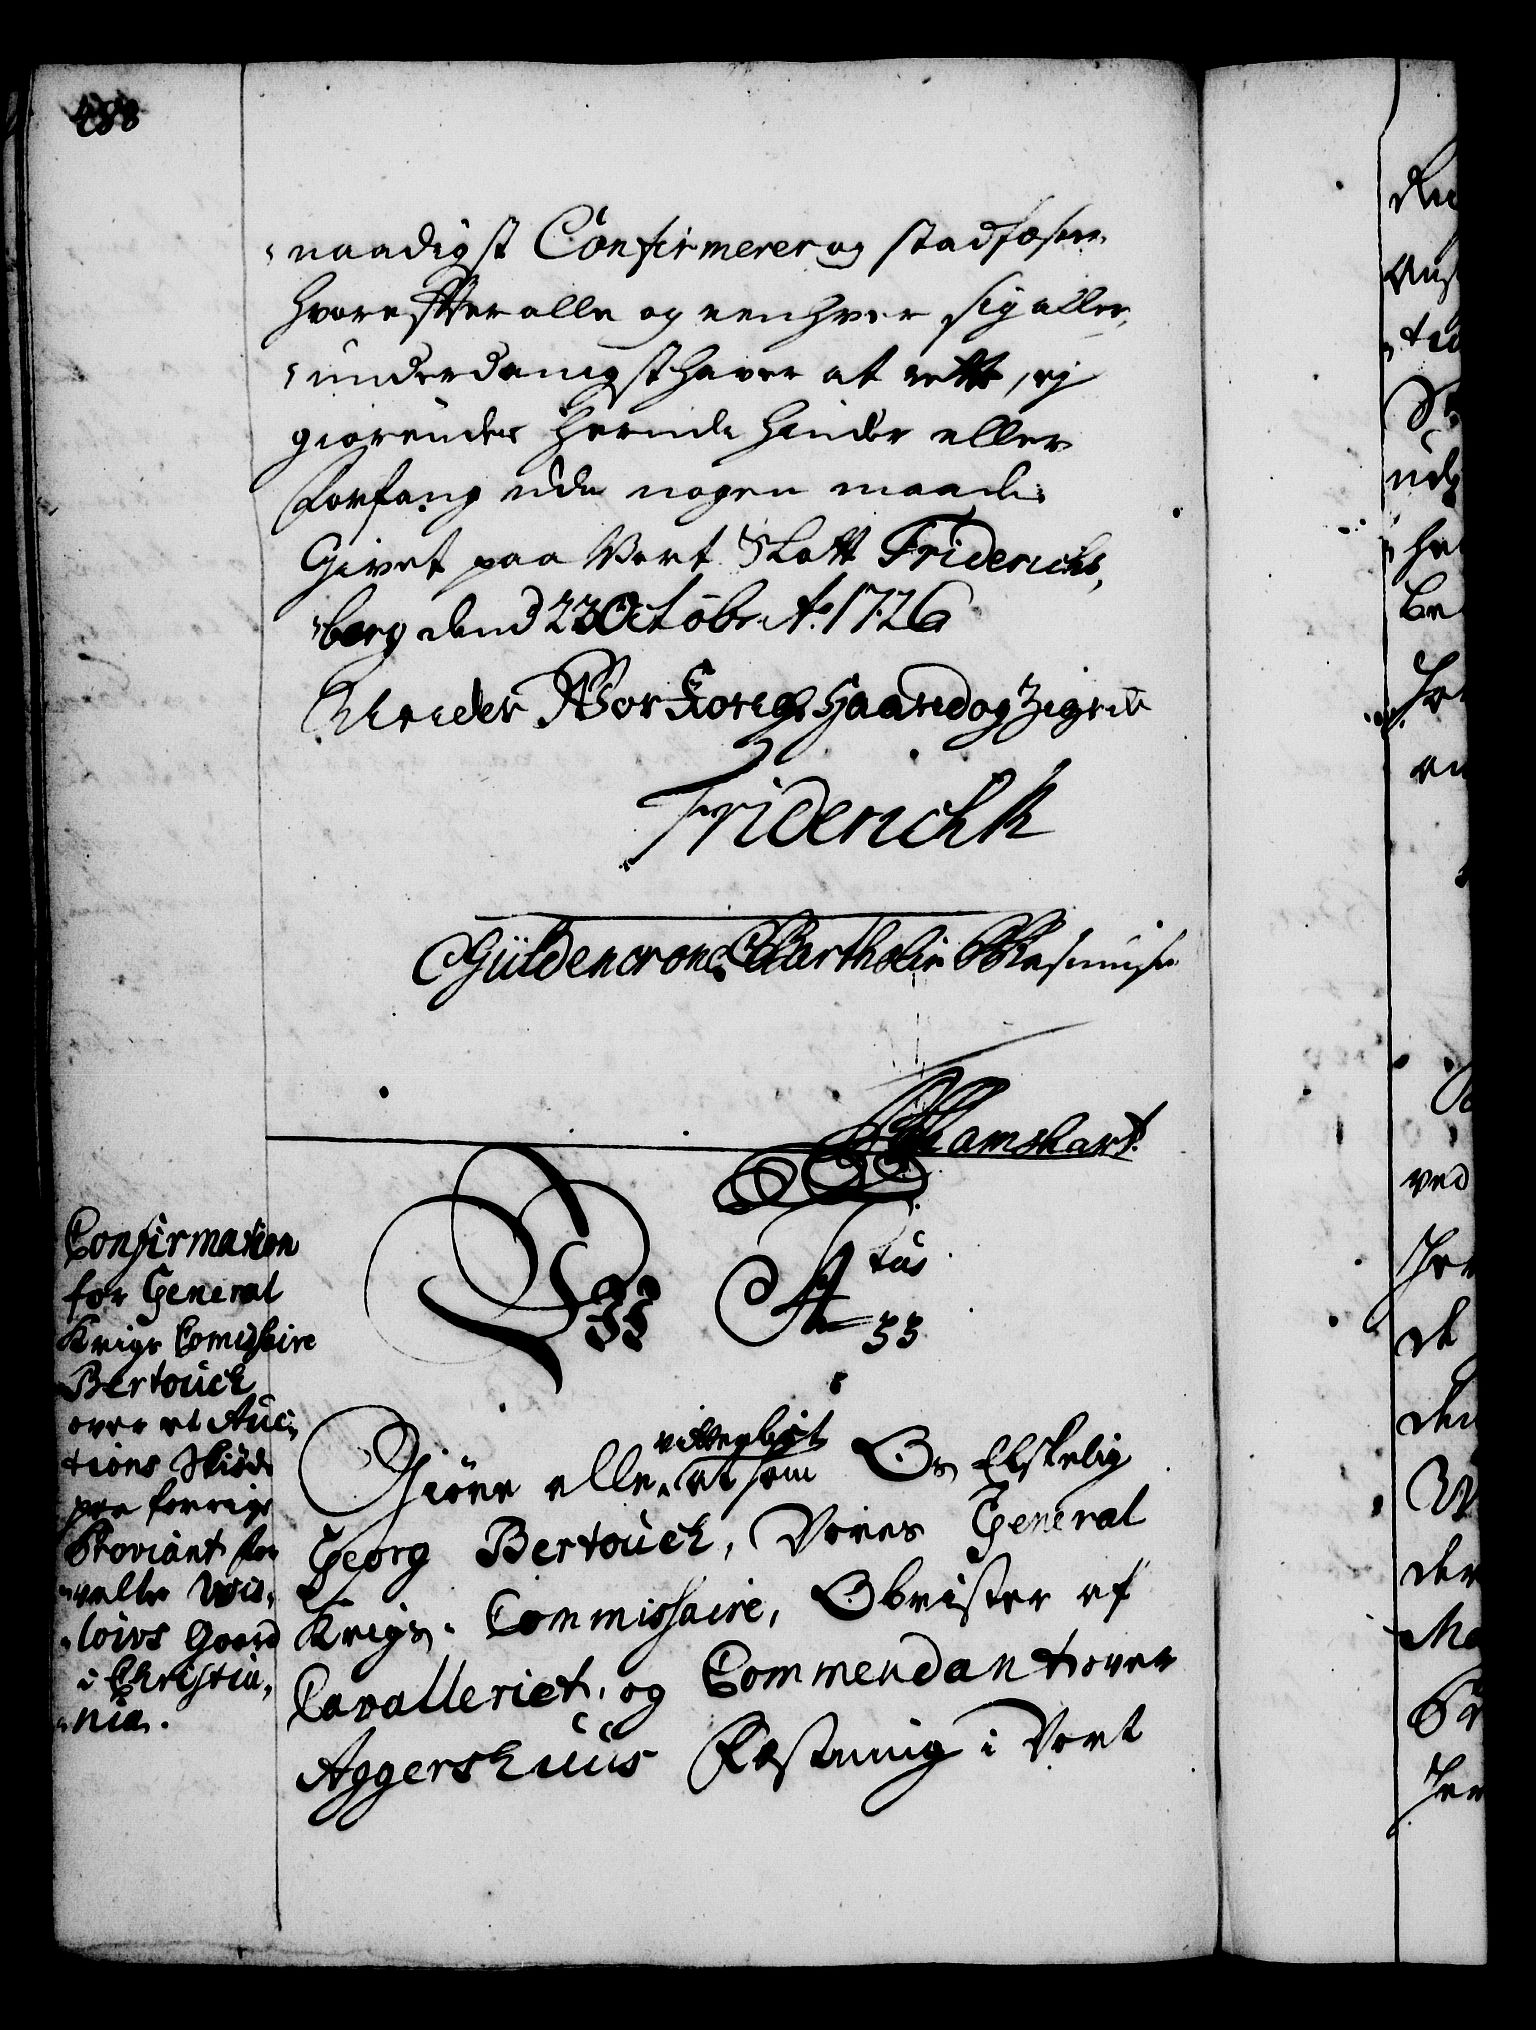 488
naadigst Confirmerer og stadfæster
hvorefter alle og eenhver sig aller,
underdanigst haver at rette, ej
giørendes herudi hinder eller
forfang udi nogen maade.
Givet paa Vort Slott Friderichs,
berg dend 23 Octobr Ao. 1726
Under Vor Kongl. Haand og Zignet
Friderich R
Güldencrone CBartholin Rasmusen
Ramshart.
Wii
Fr
tus
33
Confirmation
for General
Krigs Comissaire
Bertouch
over et Auc,
tions Skiøde
paa forrige
Proviant for,
valter Wis,
loivs Gaard
i Christia,
nia.
Giøre alle vitterligt at som Os Elskelig
Georg Bertouch, Vores General
Krigs Commissaire, Obrister af
Cavalleriet, og Commendant over
Aggershuus Fæstning i Vort